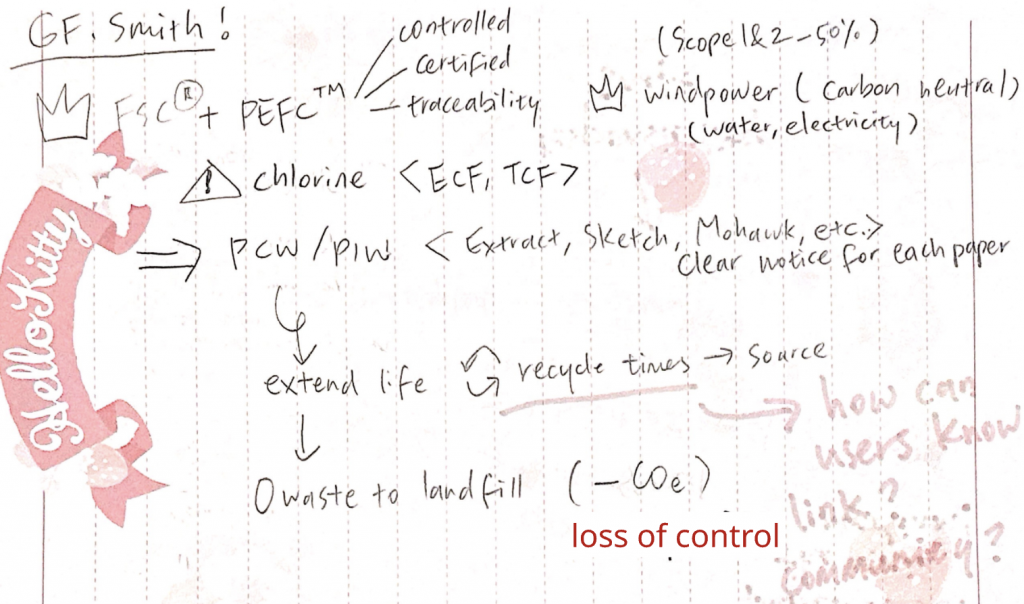 GF. Smith!
controlled
certified
traceability
FSC® + PEFC™
(Scope 1&2 - 50%)
windpower (carbon neutral)
(water, electricity)
! chlorine <ECF, TCF>
⇒ PCW/PIW < Extract, Sketch, Mohawk, etc.>
clear notice for each paper
extend life recycle times → source
how can
users know
link?
community?
0 waste to landfill (-COe)
loss of control
Hello Kitty